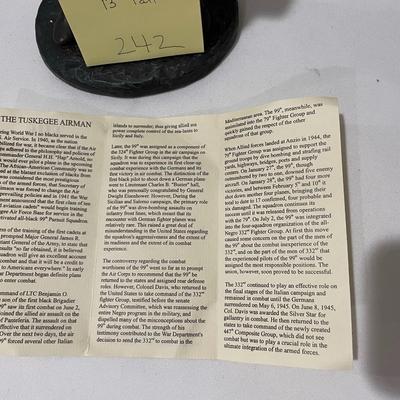 13" Tall
242
THE TUSKEGEE AIRMAN
ring World War I no blacks served in the
Air Service. In 1940, as the nation
bilized for war, it became clear that the Air
ps adhered to the philosophy and policies of
commander General H.H. "Hap" Arnold, no
s would ever pilot a plane in the upcoming
The African-American Community was
ed at the blatant exclusion of blacks from
nd policies. Over the years, the
s of the armed forces, that Secretary of
timson was forced to change the Air
prevailing policies and in 1941 the War
ment announced that the first class of ten
d aviation cadets" would begin training
gee Air Force Base for service in the
ctivated all-black 99th Pursuit Squadron.
on of the training of the first cadets at
prompted Major General James R.
stant General of the Army, to state that
esults "so far obtained, it is believed
quadron will give an excellent account
ombat and that it will be a credit to
to Americans everywhere." In early
ar Department began definite plans
to enter combat.
mmand of LTC Benjamin O.
e son of the first black Brigadier
9th saw its first combat on June 2,
joined the allied air assault on the
of Pantelleria. The assault on that
effective that it surrendered on
Over the next two days, the air
99th forced several other Italian
islands to surrender; thus giving allied sea
power complete control of the sea-lanes to
Sicily and Italy.
Later, the 99th was assigned as a component of
the 324th Fighter Group in the air campaign on
Sicily. It was during this campaign that the
squadron was to experience its first close-up
combat experience with the Germans and its
first victory in air combat. The distinction of the
first black pilot to shoot down a German plane
went to Lieutenant Charles B. "Buster" hall,
who was personally congratulated by General
Dwight D. Eisenhower. However, During the
Sicilian and Salerno campaign, the primary role
of the 99th was dive-bombing assaults on
infantry front lines, which meant that its
encounter with German fighter planes was
relatively rare. This raised a great deal of
misunderstanding in the United States regarding
the squadron's aggressiveness and the extent of
its readiness and the extent of its combat
experience.
The controversy regarding the combat
worthiness of the 99th went so far as to prompt
the Air Corp to recommend that the 99th be
returned to the states and assigned rear defense
roles. However, Colonel Davis, who returned to
the United States to take command of the 332nd
fighter Group, testified before the senate
Advisory Committee, which was reassessing the
entire Negro program in the military, and
dispelled many of the misconceptions about the
99th during combat. The strength of his
testimony contributed to the War Department's
decision to send the 332nd to combat in the
Mediterranean area. The 99th, meanwhile, was
assimilated into the 79th Fighter Group and
quickly gained the respect of the other
squadrons of that group.
When Allied forces landed at Anzio in 1944, the
79th Fighter Group was assigned to support the
ground troops by dive bombing and strafing rail
yards, highways, bridges, ports and supply
centers. On January 27th, the 99th, though
outnumbered by two to one, downed five enemy
aircraft. On January 28th, the 99th had four more
victories, and between February 5th and 10th it
shot down another four planes, bringing their
total to date to 17 confirmed, four probable and
six damaged. The squadron continues its
success until it was released from operations
with the 79th. On July 2, the 99th was integrated
into the four-squadron organization of the all-
Negro 332nd Fighter Group. At first this move
caused some concern on the part of the men of
the 99th about the combat inexperience of the
332nd, and on the part of the men of 332nd that
the experienced pilots of the 99th would be
assigned the most responsible positions. The
union, however, soon proved to be successful.
The 332nd continued to play an effective role on
the final stages of the Italian campaign and
remained in combat until the Germans
surrendered on May 6, 1945. On June 8, 1945,
Col. Davis was awarded the Silver Star for
gallantry in combat. He then returned to the
states to take command of the newly created
447th Composite Group, which did not see
combat but was to play a crucial role in the
ultimate integration of the armed forces.